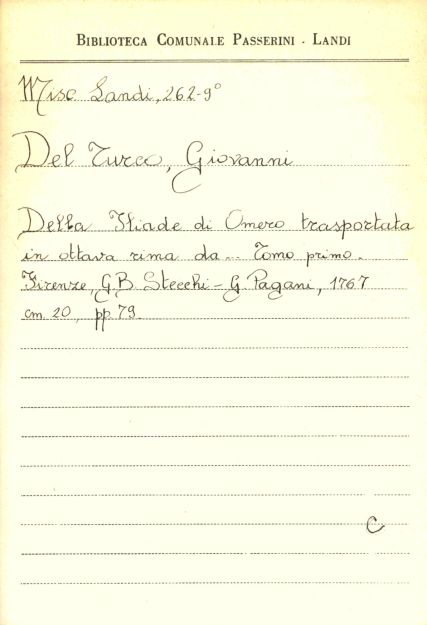 BIBLIOTECA COMUNALE PASSERINI - LANDI
Misc Landi, 262-9°
Del Turco, Giovanni
Della Iliade di Omero trasportata
in ottava rima da... Tomo primo.
Firenze, G.B. Stecchi - G. Pagani, 1767
cm. 20, pp. 79.
C